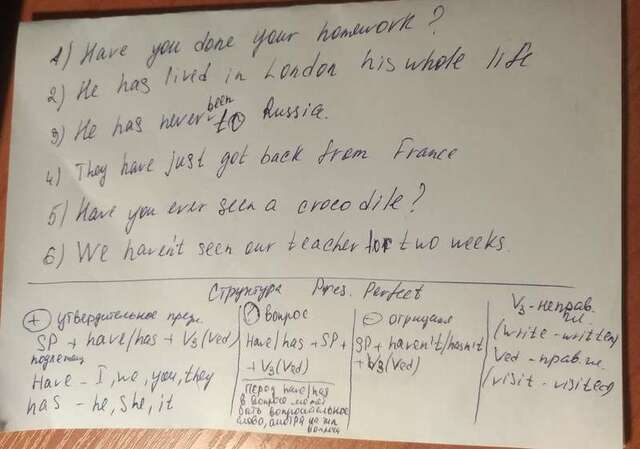 1) Have you done your homework?
2) He has lived in London his whole life
3) He has never been to Russia.
4) They have just got back from France
5) Have you ever seen a crocodile?
6) We haven't seen our teacher for two weeks.
Структура Pres. Perfect
+ утвердительное пред.
SP + have/has + V3 (Ved)
подлежащ
Have - I, we, you, they
has - he, she, it
? вопрос
Have/has + SP +
+ V3 (Ved)
Перед have/has
в вопросе может
быть вопросительное
слово,
- отрицания
SP + haven't/hasn't
+ V3 (Ved)
V3 - неправ.
гл.
(write - written)
Ved - прав. гл.
(visit - visited)